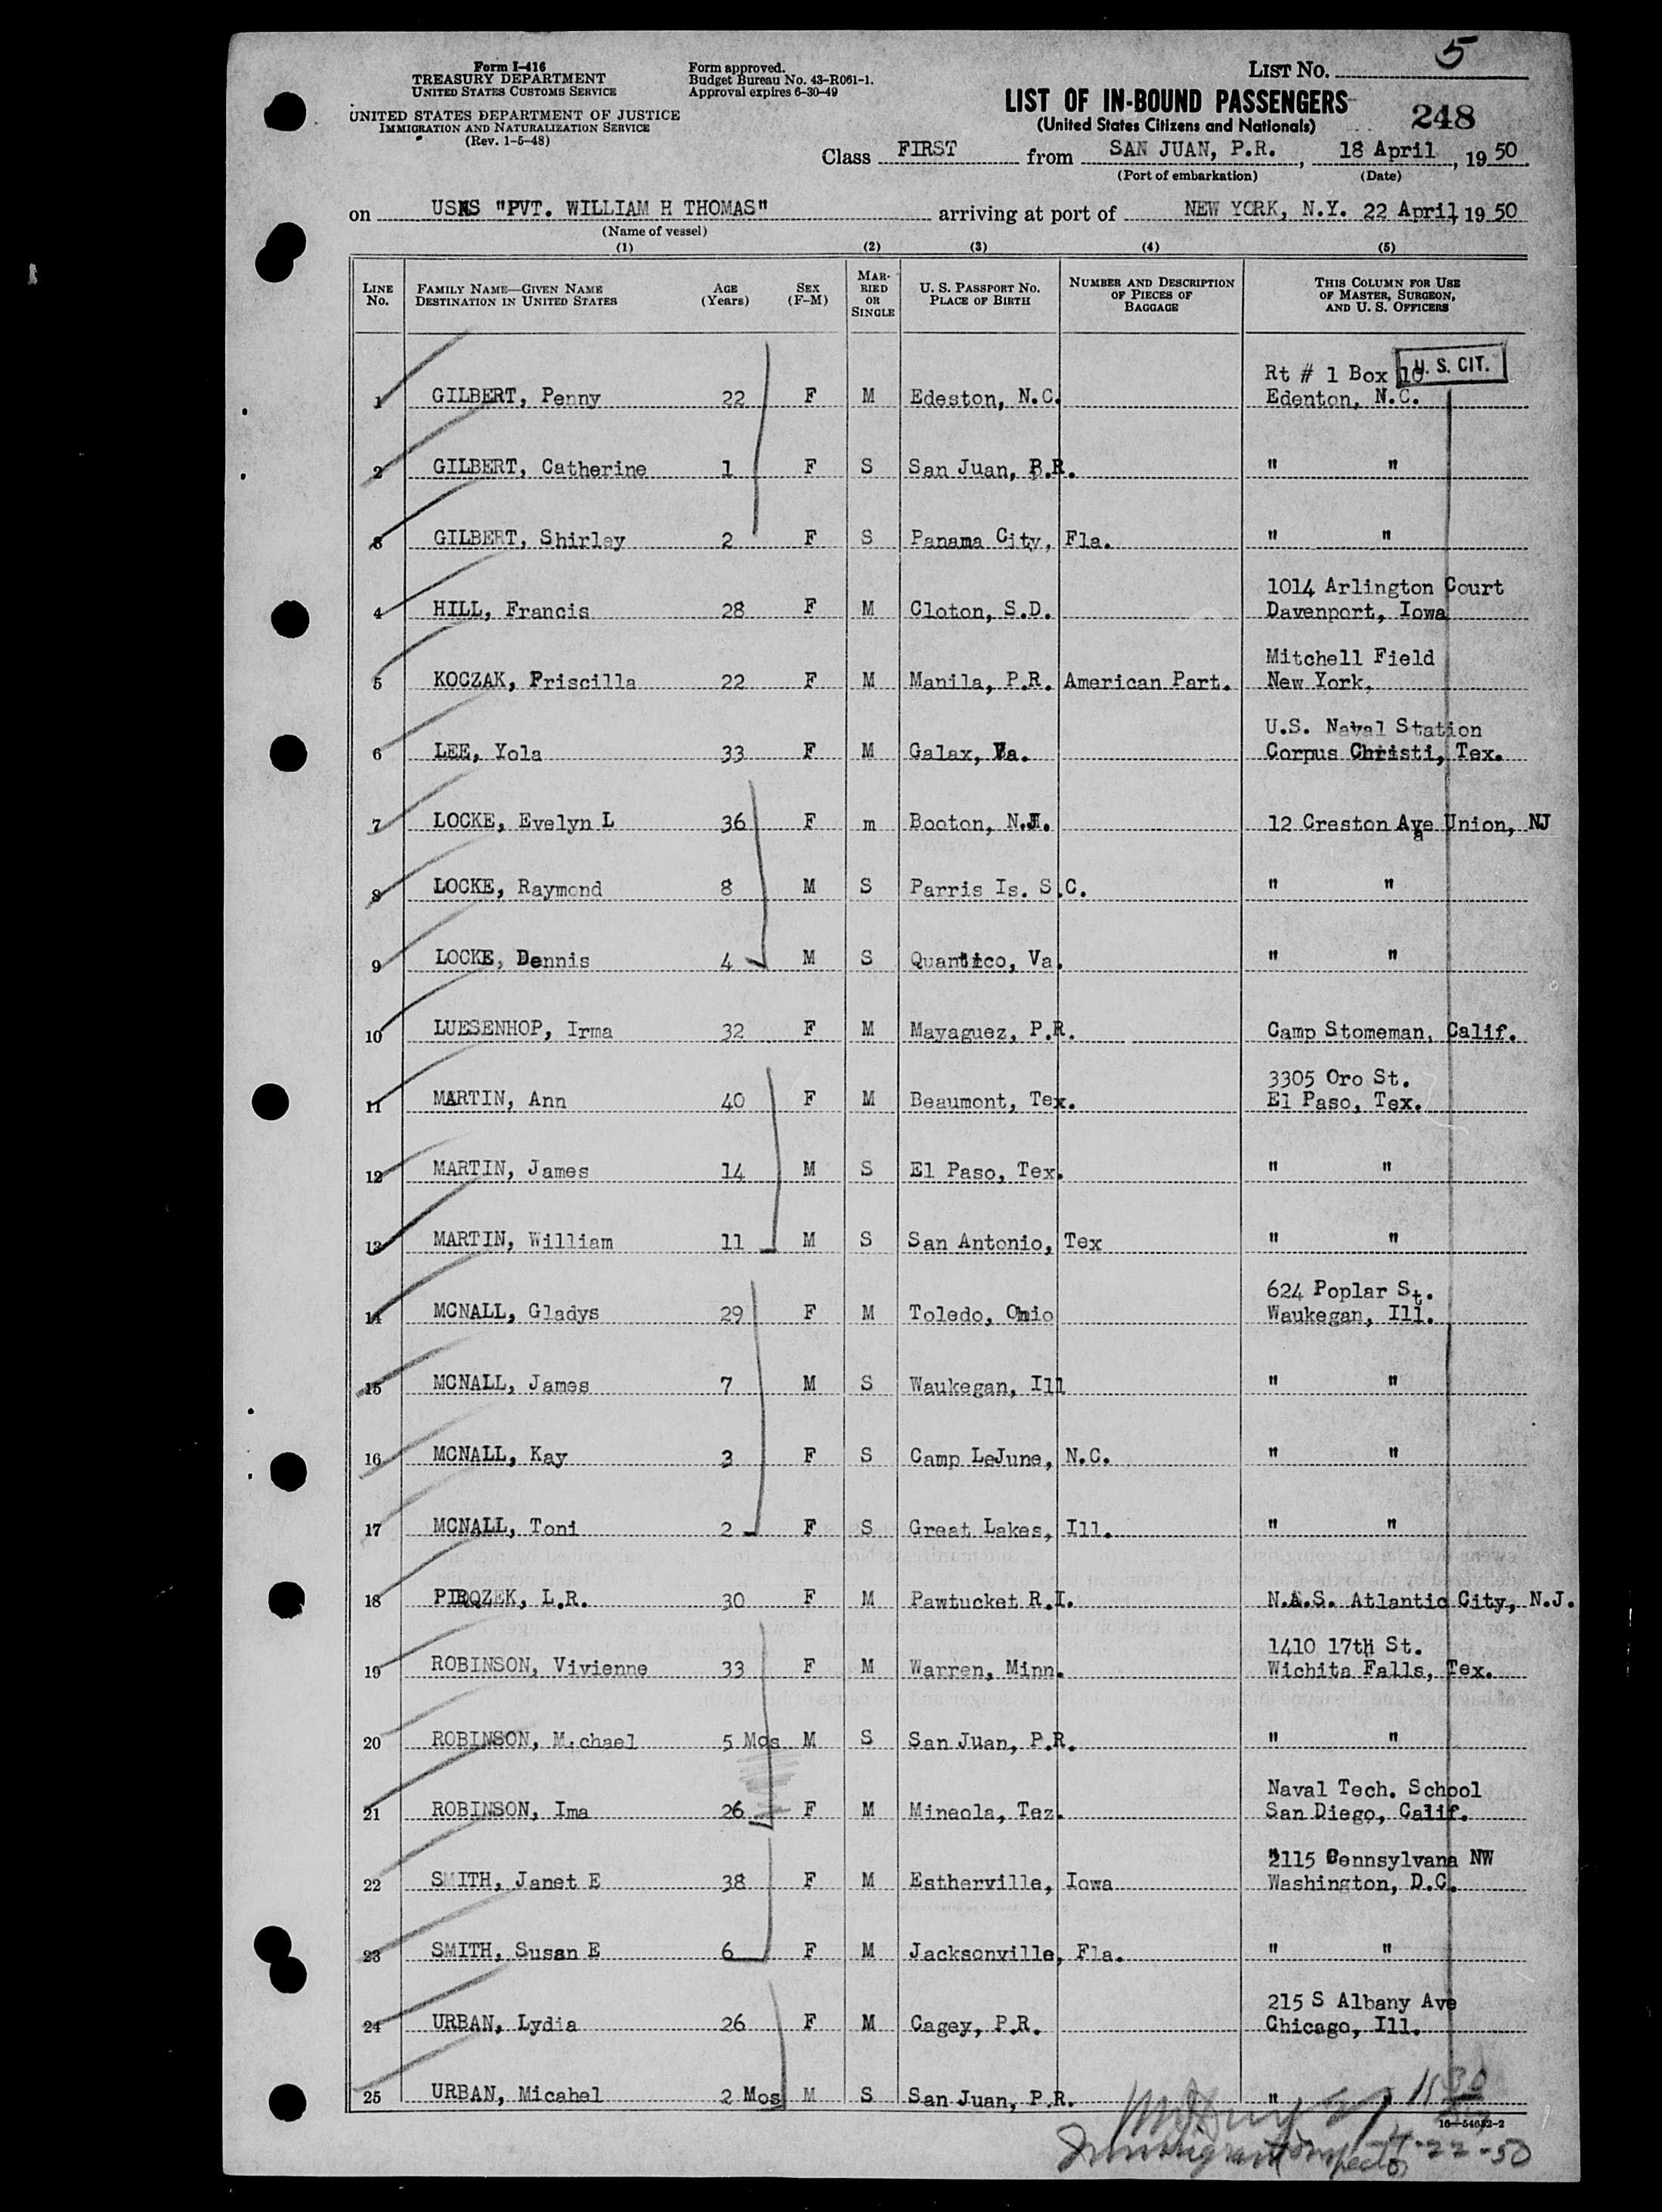 Form I-416
TREASURY DEPARTMENT
UNITED STATES CUSTOMS SERVICE
UNITED STATES DEPARTMENT OF JUSTICE
IMMIGRATION AND NATURALIZATION SERVICE
(Rev. 1-5-48)
Form approved.
Budget Bureau No. 43-R061-1.
Approval expires 6-30-49
LIST NO. 5
LIST OF IN-BOUND PASSENGERS
(United States Citizens and Nationals)
248
Class FIRST from SAN JUAN, P.R., 18 April, 1950
(Port of embarkation) (Date)
on USNS "PVT. WILLIAM H THOMAS" arriving at port of NEW YORK, N.Y. 22 April, 1950
(Name of vessel)
(1) (2) (3) (4) (5)
LINE NO. FAMILY NAME—GIVEN NAME DESTINATION IN UNITED STATES AGE (YEARS) SEX (F-M) MARRIED OR SINGLE U. S. PASSPORT NO. PLACE OF BIRTH NUMBER AND DESCRIPTION OF PIECES OF BAGGAGE THIS COLUMN FOR USE OF MASTER, SURGEON, AND U. S. OFFICERS
U. S. CIT.
Rt # 1 Box 10
1 GILBERT, Penny 22 F M Edeston, N.C. Edenton, N.C.
2 GILBERT, Catherine 1 F S San Juan, P.R. " "
3 GILBERT, Shirley 2 F S Panama City, Fla. " "
1014 Arlington Court
4 HILL, Francis 28 F M Cloton, S.D. Davenport, Iowa
Mitchell Field
5 KOCZAK, Priscilla 22 F M Manila, P.R. American Part. New York,
U.S. Naval Station
6 LEE, Yola 33 F M Galax, Va. Corpus Christi, Tex.
7 LOCKE, Evelyn L 36 F m Booton, N.J. 12 Creston Ave Union, NJ
8 LOCKE, Raymond 8 M S Parris Is. S.C. " "
9 LOCKE, Dennis 4 M S Quantico, Va. " "
10 LUESENHOP, Irma 32 F M Mayaguez, P.R. Camp Stomeman, Calif.
3305 Oro St.
11 MARTIN, Ann 40 F M Beaumont, Tex. El Paso, Tex.
12 MARTIN, James 14 M S El Paso, Tex. " "
13 MARTIN, William 11 M S San Antonio, Tex " "
624 Poplar St.
14 MCNALL, Gladys 29 F M Toledo, Ohio Waukegan, Ill.
15 MCNALL, James 7 M S Waukegan, Ill " "
16 MCNALL, Kay 3 F S Camp LeJune, N.C. " "
17 MCNALL, Toni 2 F S Great Lakes, Ill. " "
18 PIROZEK, L.R. 30 F M Pawtucket R.I. N.A.S. Atlantic City, N.J.
1410 17th St.
19 ROBINSON, Vivienne 33 F M Warren, Minn. Wichita Falls, Tex.
20 ROBINSON, Michael 5 Mos M S San Juan, P.R. " "
Naval Tech. School
21 ROBINSON, Ima 26 F M Mineola, Tez. San Diego, Calif.
2115 Pennsylvana NW
22 SMITH, Janet E 38 F M Estherville, Iowa Washington, D.C.
23 SMITH, Susan E 6 F M Jacksonville, Fla. " "
215 S Albany Ave
24 URBAN, Lydia 26 F M Cagey, P.R. Chicago, Ill.
25 URBAN, Micahel 2 Mos M S San Juan, P.R. " "
16-54682-2
Immigrant Inspector 4-22-50